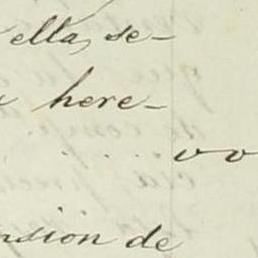 ella, se-
here-
vv
nsion de